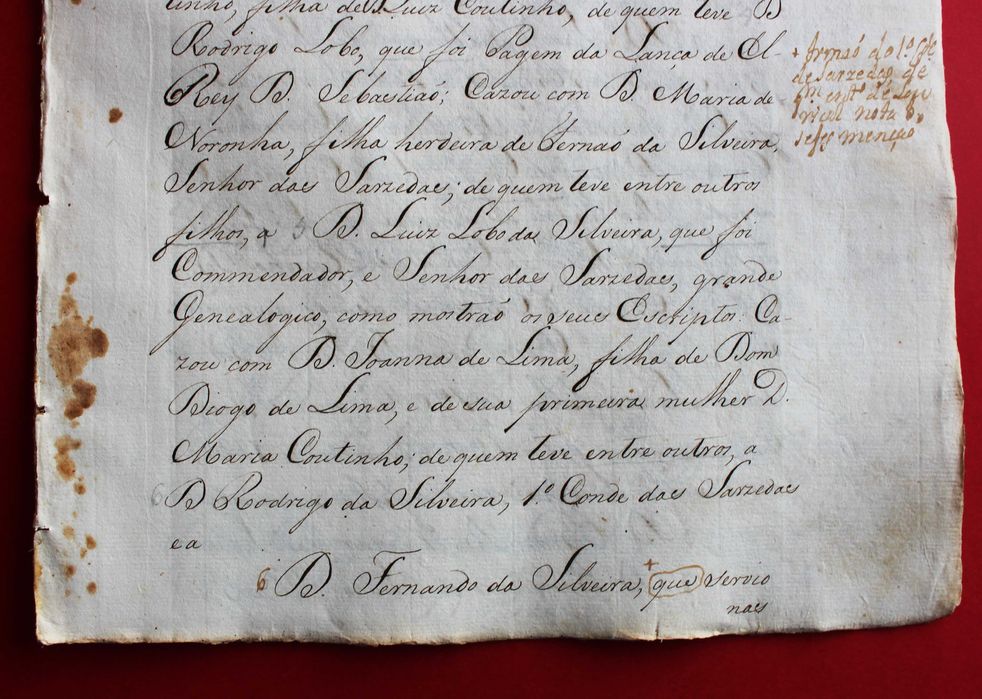 tinho, filha de D. Luiz Coutinho, de quem teve D
Rodrigo Lobo, que foi Pagem da Lança de El-
Rey D. Sebastiaõ; Cazou com D. Maria de
Noronha, filha herdeira de Fernaõ da Silveira,
Senhor das Sarzedas; de quem teve entre outros
filhos, a D. Luiz Lobo da Silveira, que foi
Commendador, e Senhor das Sarzedas, grande
Genealogico, como mostraõ os seus Escriptos. Ca-
zou com D. Joanna de Lima, filha de Dom
Diogo de Lima, e de sua primeira mulher D.
Maria Coutinho; de quem teve entre outros, a
6 D Rodrigo da Silveira, 1º Conde das Sarzedas
e a
6 D. Fernando da Silveira, + que servio
nas
+ Irmaõ do 1º Cde
de Sarzedas, de
qm
nota
se fez mençaõ